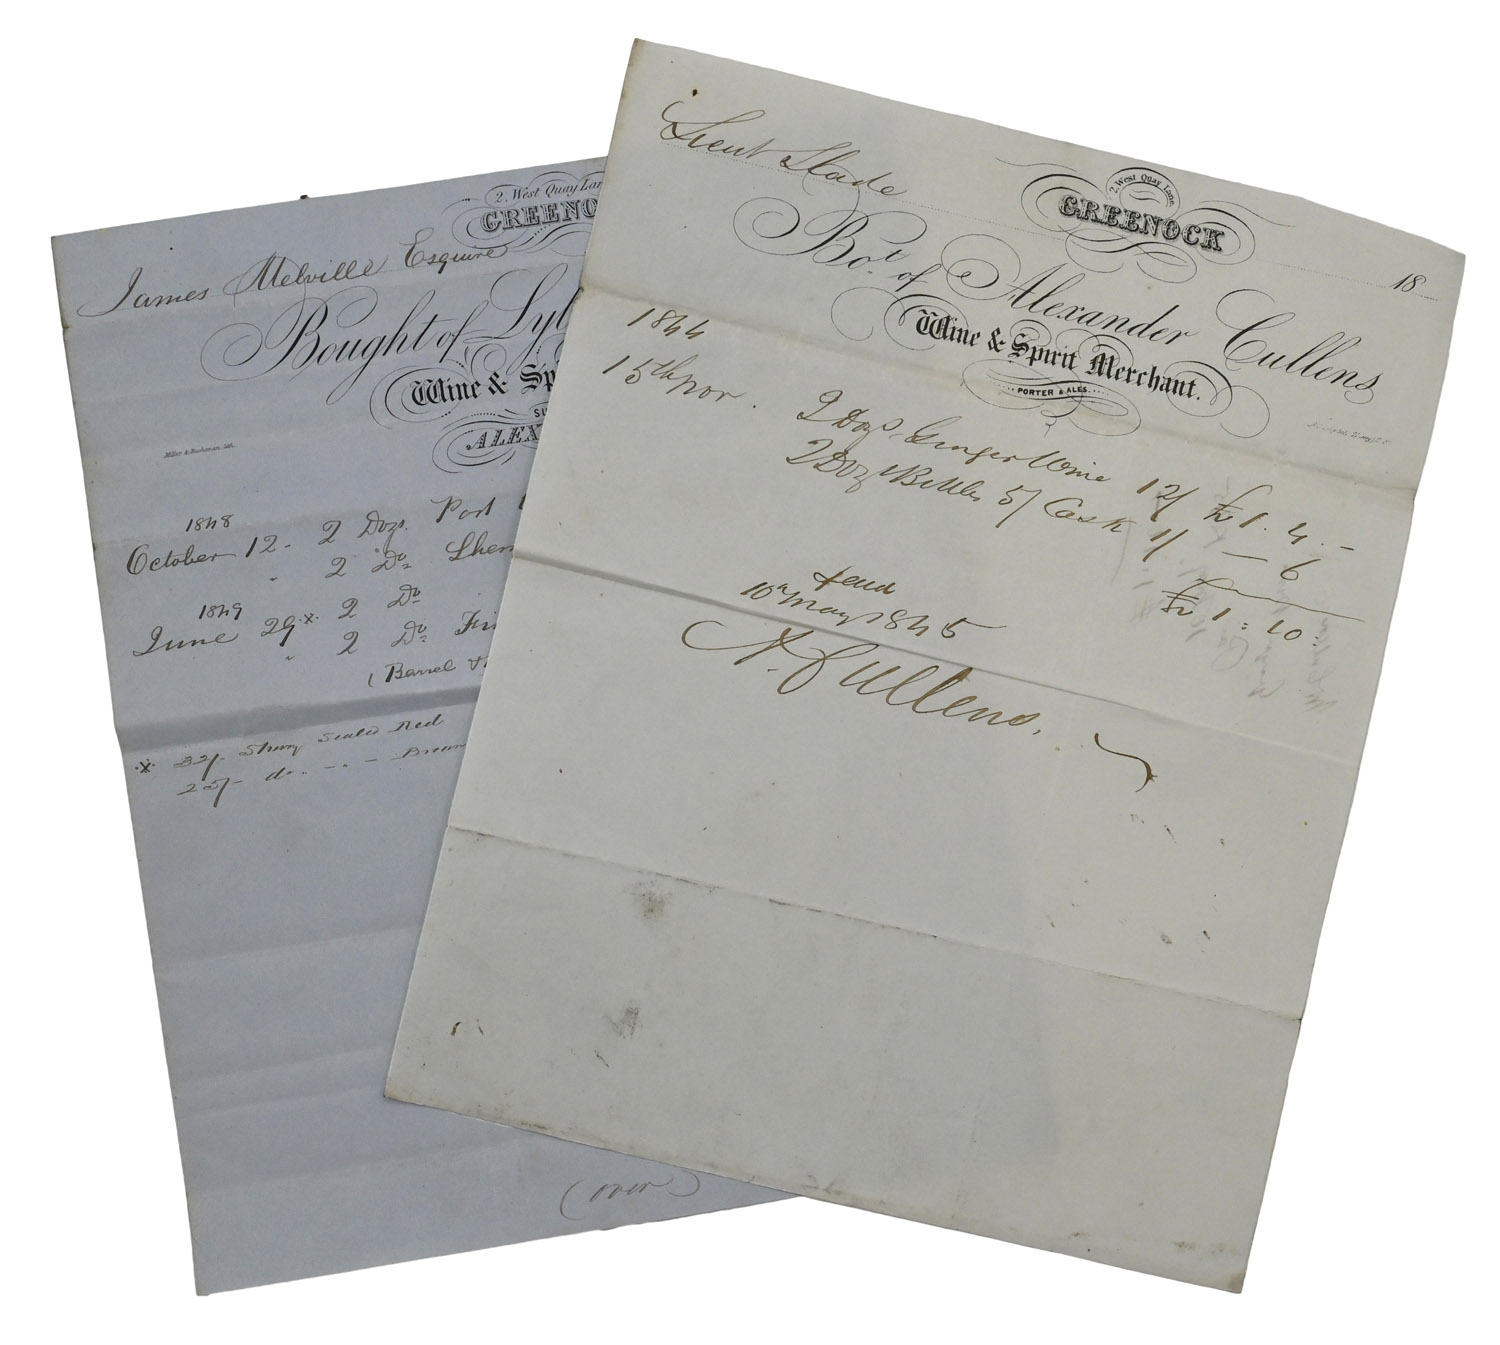 2. West Quay Lan
GREENO
James Melville Esquire
Bought of Lyl
Wine & Sp
SU
ALEX
Miller & Buchanan, lith.
1848
October 12 - 2 Dozs. Port
" 2 Do. Sher
1849
June 29 x 2 Do
" 2 Do. Fi
(Barrel
x 32/- Sherry Sealed Red
25/- do. - - - Brown
(over)
Lieut Slade
2. West Quay Lane.
GREENOCK
18
Bot. of Alexander Cullens
Wine & Spirit Merchant.
PORTER & ALES.
1844
15th Nov. 2 Dozs. Ginger Wine 12/ £ 1. 4. -
2 Doz Bottles 5/ Cask 1/ — 6
£ 1 : 10 :
10th May 1845
A. Cullens.